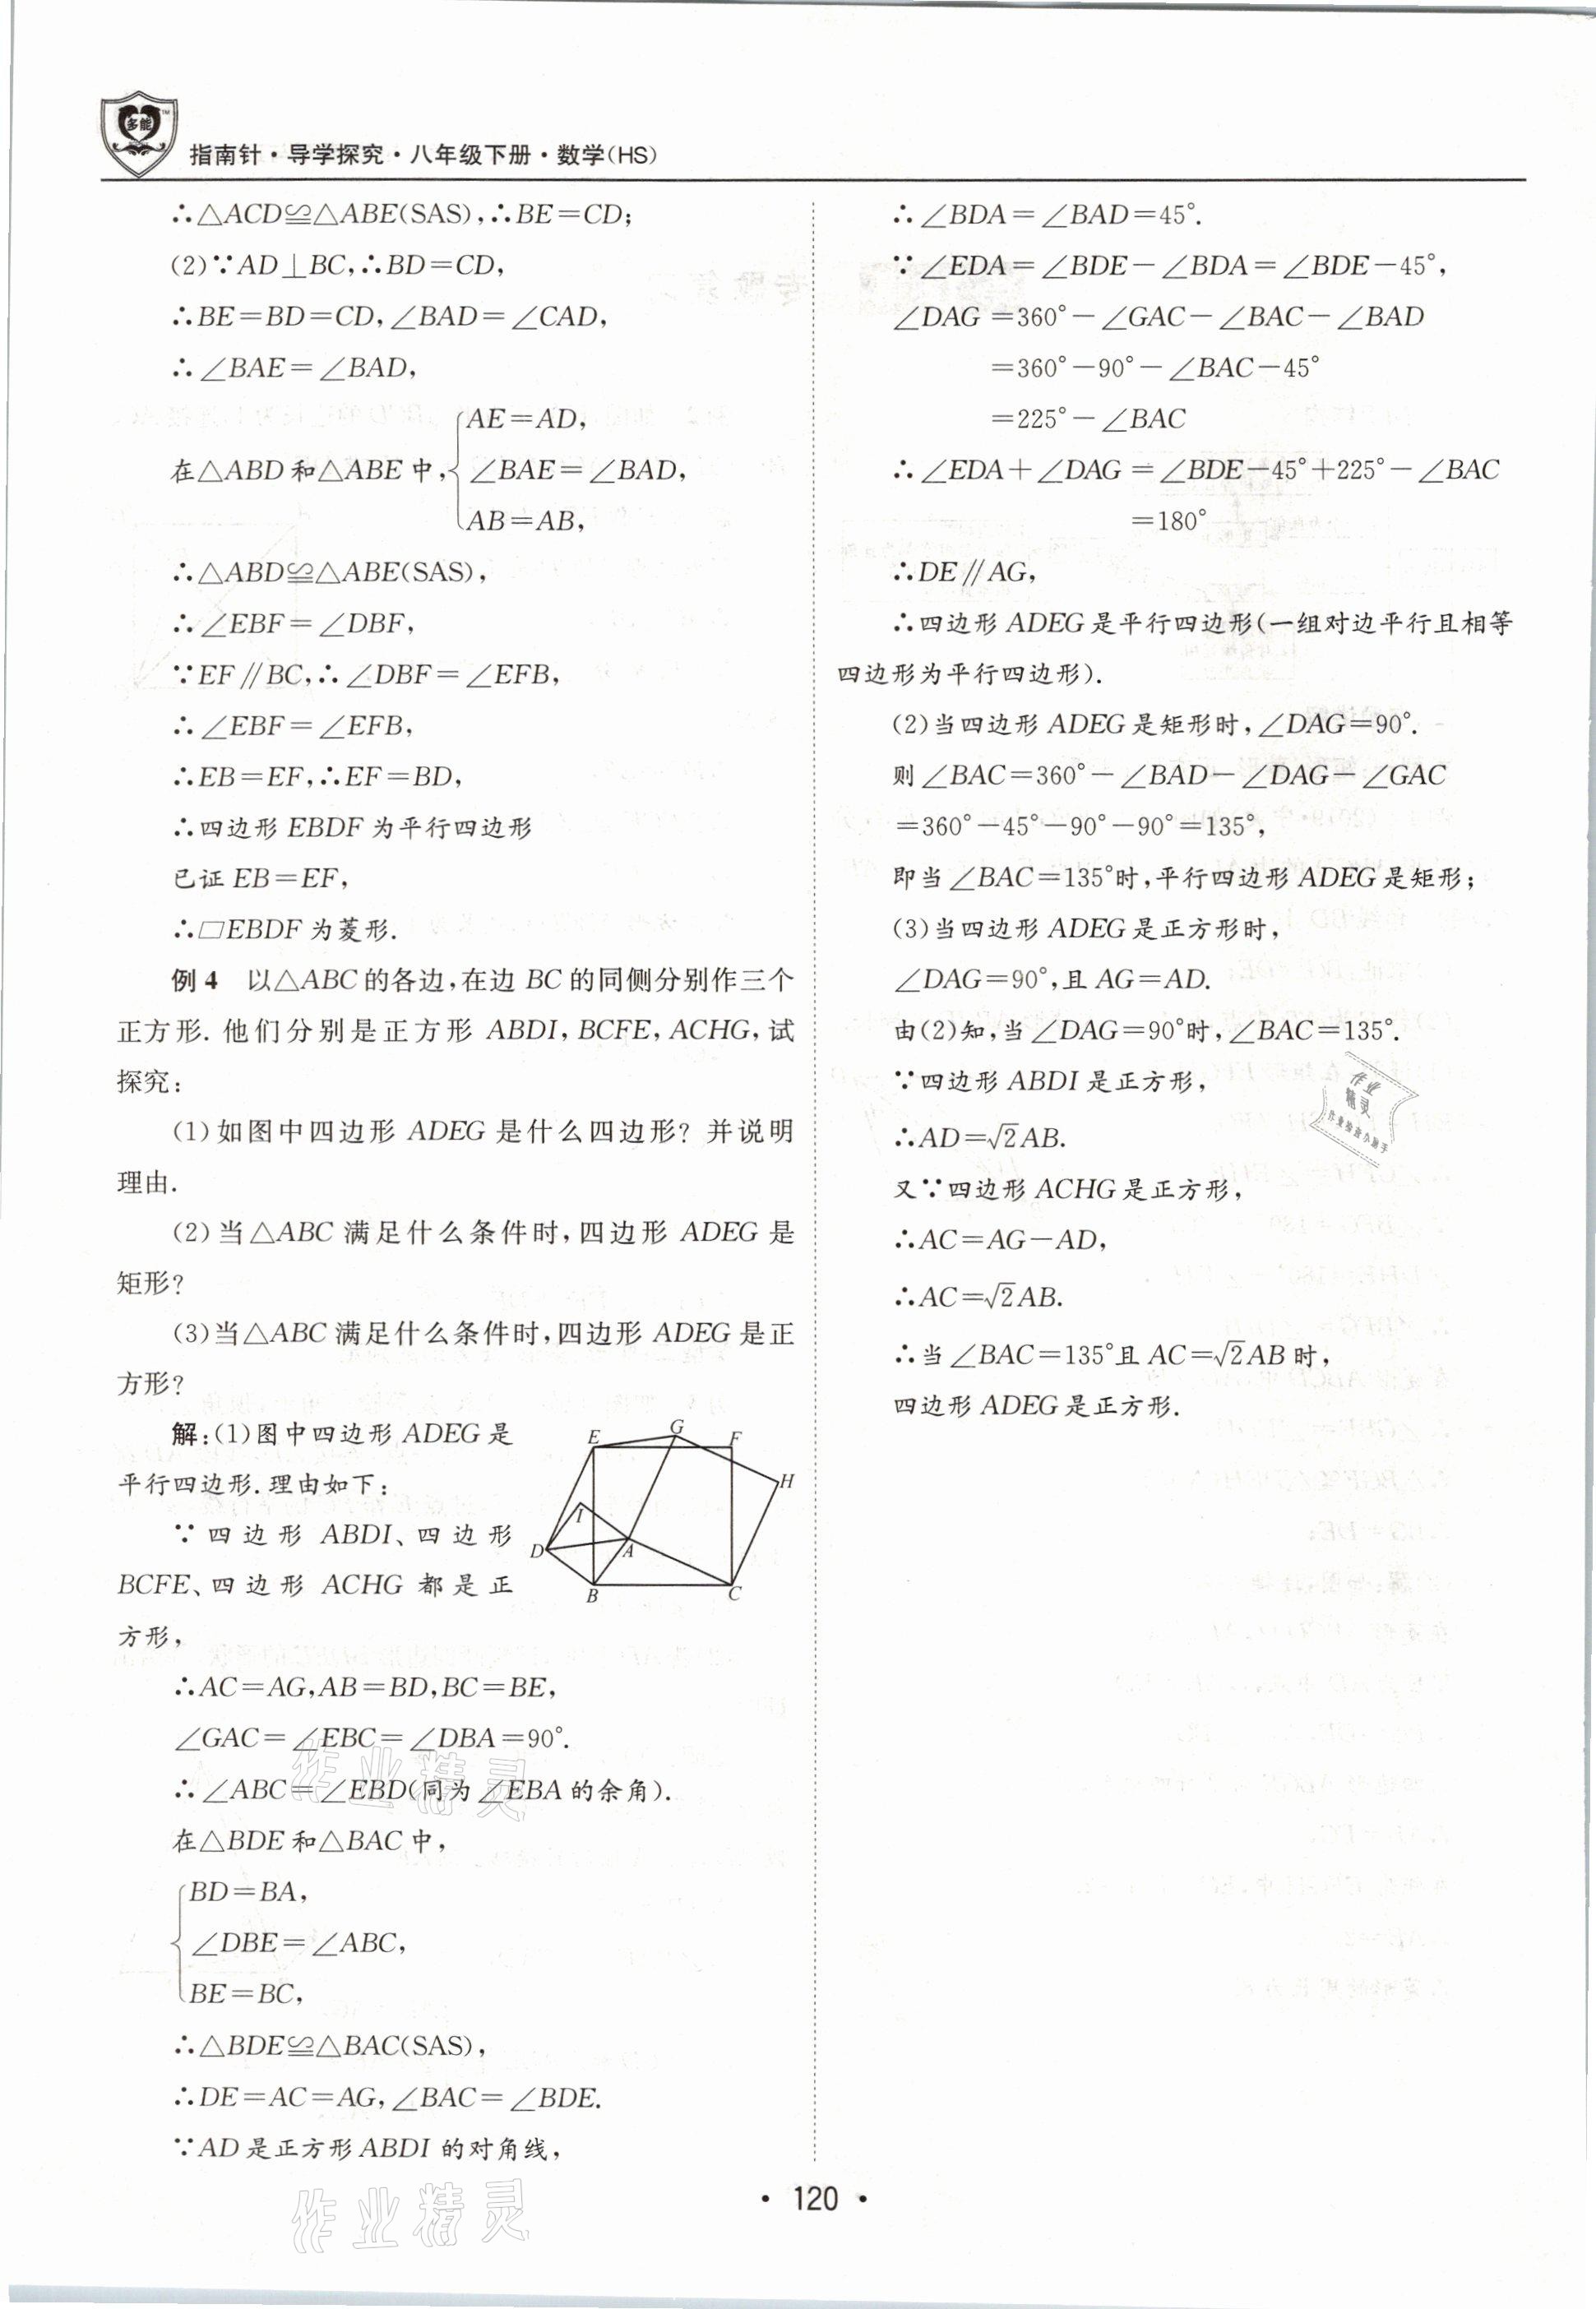 多能
TM
指南针·导学探究·八年级下册·数学(HS)
∴△ACD≌△ABE(SAS),∴BE=CD;
(2)∵AD⊥BC,∴BD=CD,
∴BE=BD=CD,∠BAD=∠CAD,
∴∠BAE=∠BAD,
AE=AD,
在△ABD和△ABE中,{∠BAE=∠BAD,
AB=AB,
∴△ABD≌△ABE(SAS),
∴∠EBF=∠DBF,
∵EF∥BC,∴∠DBF=∠EFB,
∴∠EBF=∠EFB,
∴EB=EF,∴EF=BD,
∴四边形EBDF为平行四边形
已证EB=EF,
∴▱EBDF为菱形.
例4 以△ABC的各边,在边BC的同侧分别作三个
正方形.他们分别是正方形ABDI,BCFE,ACHG,试
探究:
(1)如图中四边形ADEG是什么四边形?并说明
理由.
(2)当△ABC满足什么条件时,四边形ADEG是
矩形?
(3)当△ABC满足什么条件时,四边形ADEG是正
方形?
解:(1)图中四边形ADEG是
平行四边形.理由如下:
∵四边形ABDI、四边形
BCFE、四边形ACHG都是正
方形,
E G F H I D A B C
∴AC=AG,AB=BD,BC=BE,
∠GAC=∠EBC=∠DBA=90°.
∴∠ABC=∠EBD(同为∠EBA的余角).
在△BDE和△BAC中,
{BD=BA,
∠DBE=∠ABC,
BE=BC,
∴△BDE≌△BAC(SAS),
∴DE=AC=AG,∠BAC=∠BDE.
∵AD是正方形ABDI的对角线,
∴∠BDA=∠BAD=45°.
∵∠EDA=∠BDE-∠BDA=∠BDE-45°,
∠DAG=360°-∠GAC-∠BAC-∠BAD
=360°-90°-∠BAC-45°
=225°-∠BAC
∴∠EDA+∠DAG=∠BDE-45°+225°-∠BAC
=180°
∴DE∥AG,
∴四边形ADEG是平行四边形(一组对边平行且相等
四边形为平行四边形).
(2)当四边形ADEG是矩形时,∠DAG=90°.
则∠BAC=360°-∠BAD-∠DAG-∠GAC
=360°-45°-90°-90°=135°,
即当∠BAC=135°时,平行四边形ADEG是矩形;
(3)当四边形ADEG是正方形时,
∠DAG=90°,且AG=AD.
由(2)知,当∠DAG=90°时,∠BAC=135°.
∵四边形ABDI是正方形,
∴AD=√2AB.
又∵四边形ACHG是正方形,
∴AC=AG-AD,
∴AC=√2AB.
∴当∠BAC=135°且AC=√2AB时,
四边形ADEG是正方形.
作业
精灵
作业精灵
作业精灵
·120·